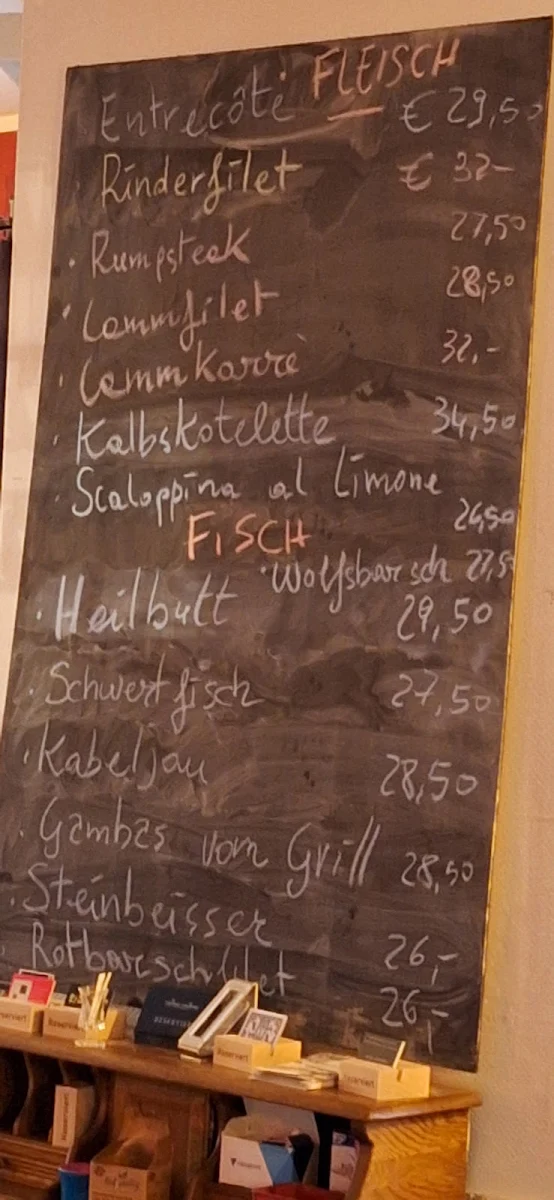 FLEISCH
Entrecôte € 29,50
Rinderfilet € 32-
· Rumpsteak 27,50
· Lammfilet 28,50
· Lammkarrè 32,-
· Kalbskotelette 34,50
· Scaloppina al Limone
26,50
FISCH
· Wolfsbarsch 27,5
· Heilbutt 29,50
· Schwertfisch 27,50
· Kabeljau 28,50
· Gambas vom Grill 28,50
· Steinbeisser 26,-
· Rotbarschfilet 26,-
Reserviert